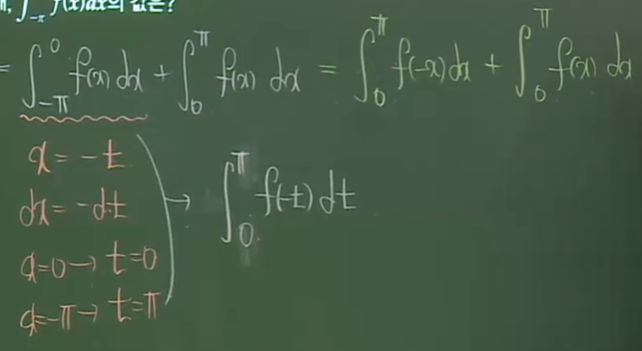 ∫_{-π} f(x)dx의 값은?
= ∫_{-π}^{0} f(x) dx + ∫_{0}^{π} f(x) dx = ∫_{0}^{π} f(-x) dx + ∫_{0}^{π} f(x) dx
x = -t
dx = -dt
x=0 → t=0
x=-π → t=π
→ ∫_{0}^{π} f(-t) dt